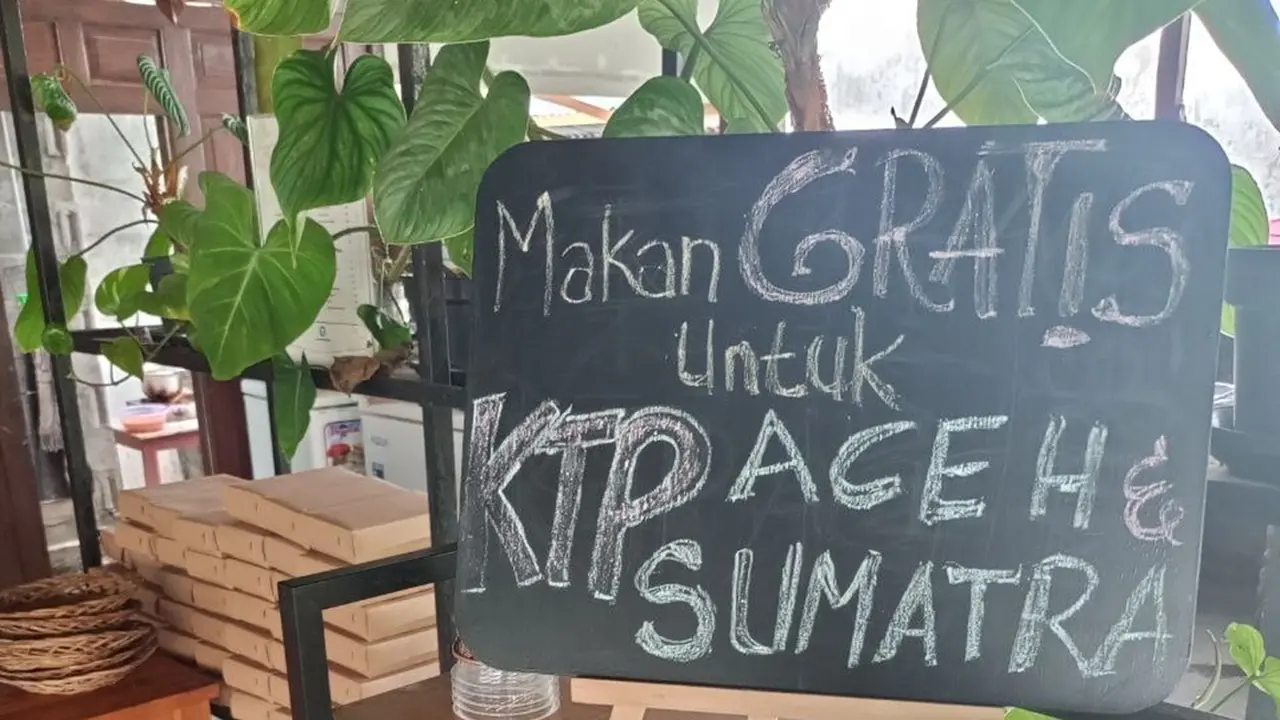 Makan GRATIS
untuk
KTP ACEH &
SUMATRA